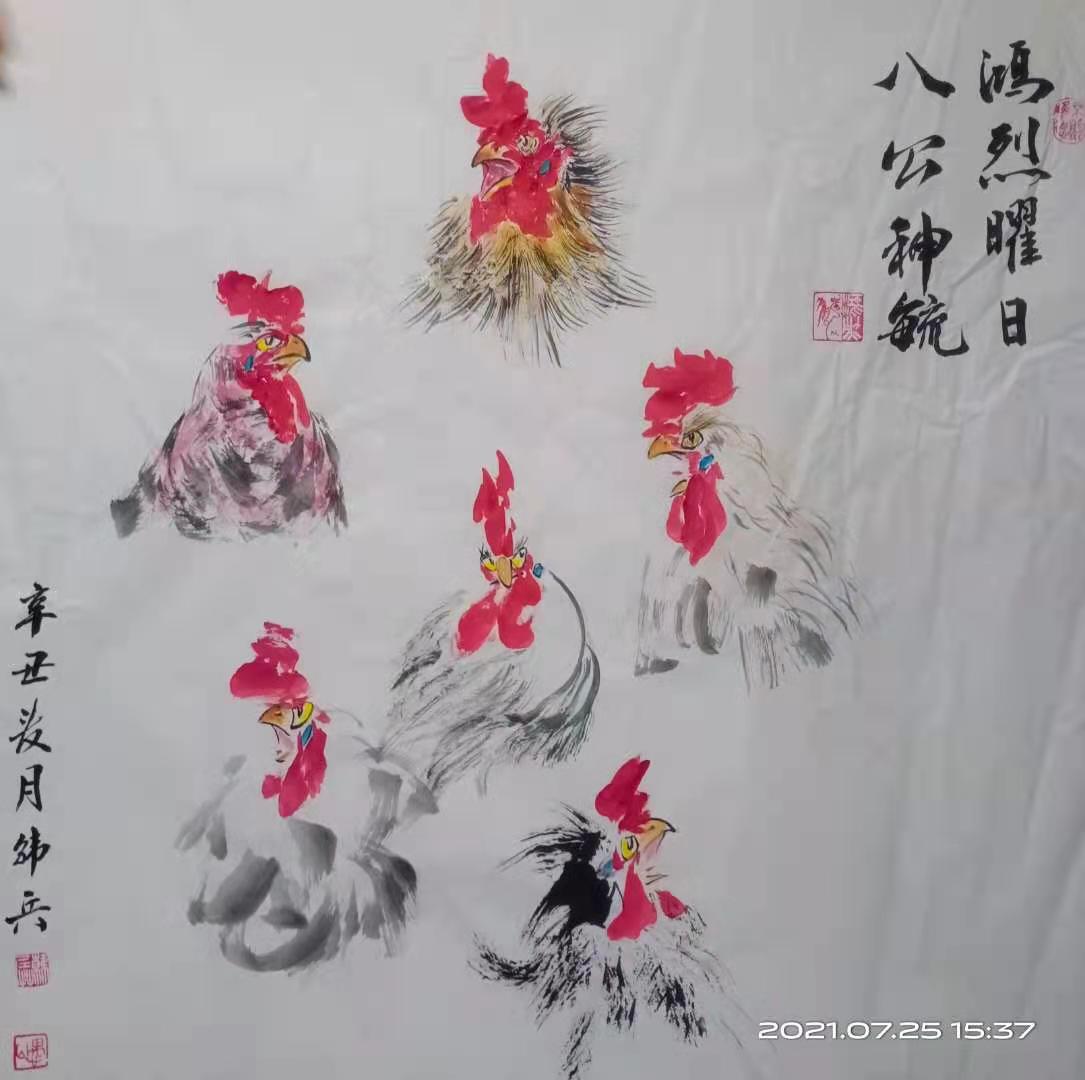 鸿烈曜日
八公神毓
辛丑荄月韩兵
2021.07.25 15:37